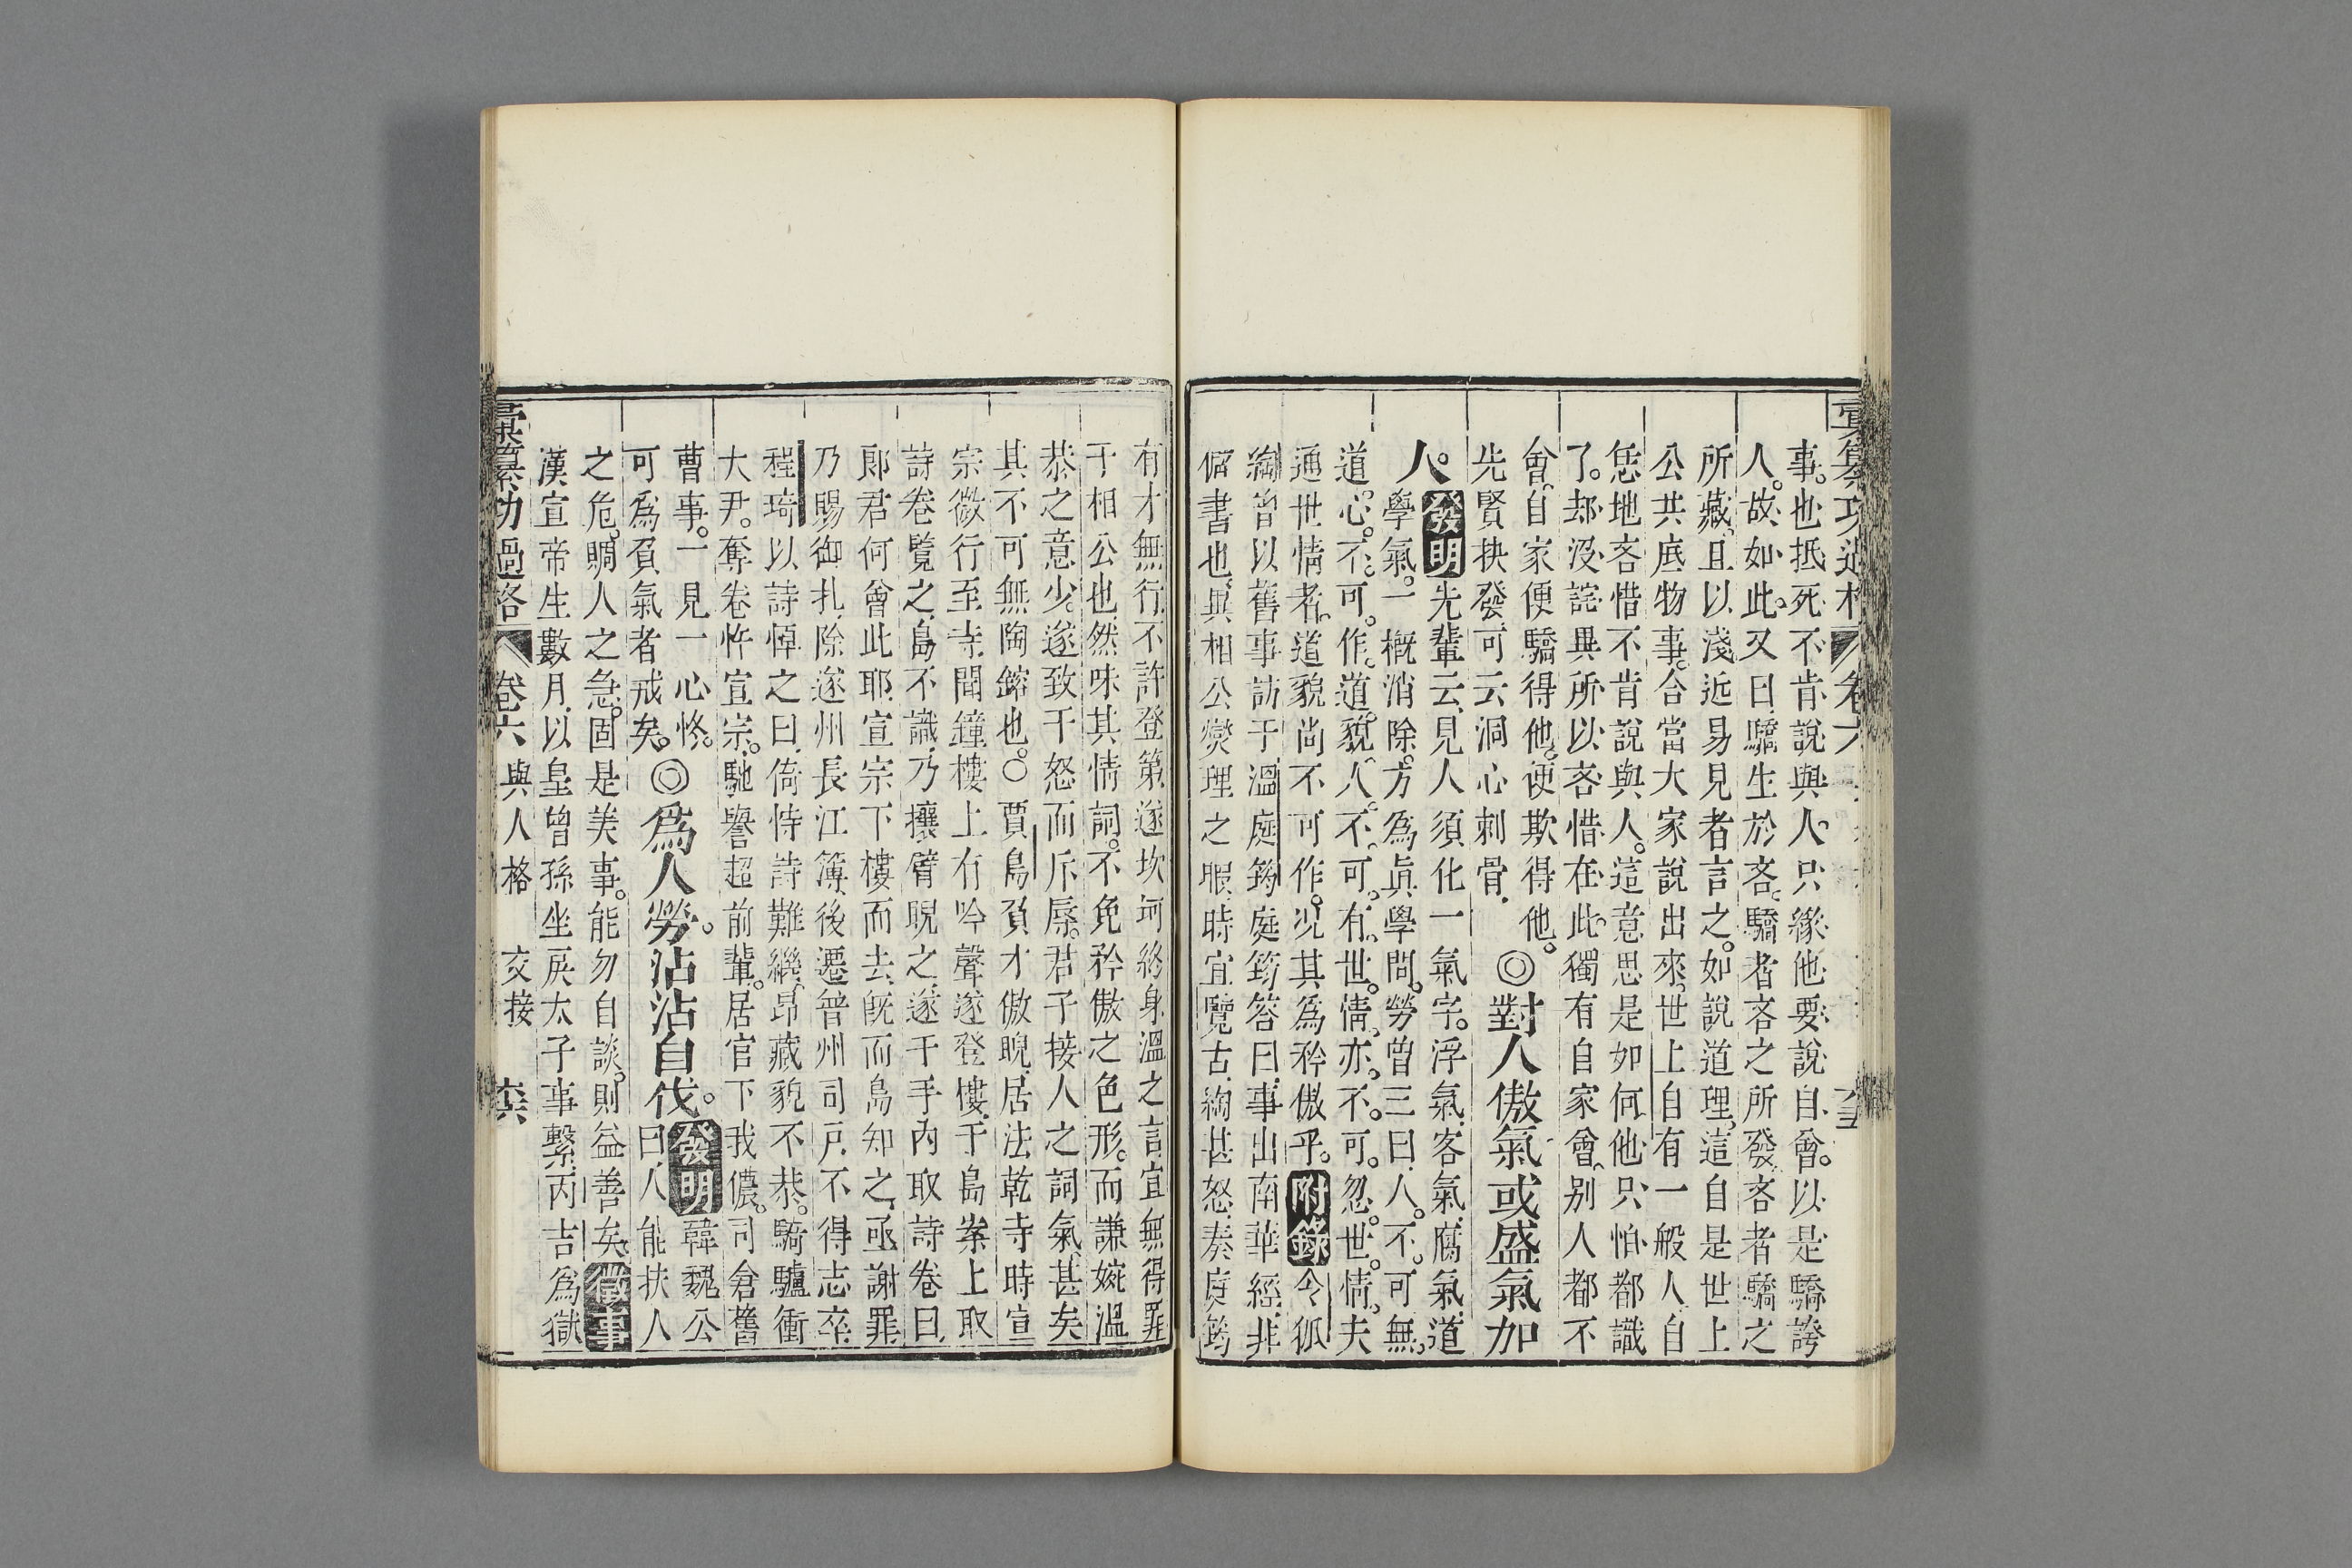 事。也抵死不肯說與人。只緣他要說自會。以是驕誇
人。故如此。又曰、驕生於吝。驕者吝之所發、吝者驕之
所藏。且以淺近易見者言之。如說道理。這自是世上
公共底物事。合當大家說出來。世上自有一般人、自
恁地吝惜、不肯說與人。這意思是如何。他只怕都識
了。却沒詫異。所以吝惜在此。獨有自家會。別人都不
會。自家便驕得他。便欺得他。◎對人傲氣或盛氣加
先賢抉發、可云洞心刺骨
人。發明先輩云、見人須化一氣字。浮氣、客氣、腐氣、道
學氣。一槪消除。方爲眞學問。勞曾三曰、人。不。可無。
道。心。不。可。作。道。貌。人。不。可。有。世。情。亦。不。可。忽。世。情。夫
通世情者。道貌尚不可作。況其爲矜傲乎。附錄令狐
綯曾以舊事訪于溫庭筠。庭筠答曰、事出南華經、非
僻書也。冀相公燮理之暇、時宜覽古。綯甚怒、奏庭筠
有才無行、不許登第、遂坎坷終身。溫之言、宜無得罪
于相公也、然味其情詞。不免矜傲之色形。而謙婉溫
恭之意少。遂致干怒而斥辱。君子接人之詞氣、甚矣
其不可無陶鎔也。○賈島負才傲睨、居法乾寺時、宣
宗微行至寺、聞鐘樓上有吟聲、遂登樓、于島案上取
詩卷覽之、島不識、乃攘臂睨之、遂于手內取詩卷曰、
郞君何曾此耶、宣宗下樓而去、旣而島知之、亟謝罪
乃賜御札、除遂州長江簿、後遷普州司戶、不得志卒
程琦以詩悼之曰、倚恃詩難繼、昂藏貌不恭。騎驢衝
大尹。奪卷忤宣宗。馳譽超前輩。居官下我儂。司倉舊
曹事。一見一心忡。
可爲負氣者戒矣。◎爲人勞。沾沾自伐。發明韓魏公曰、人能扶人
之危。賙人之急。固是美事。能勿自談。則益善矣。徵事
漢宣帝生數月、以皇曾孫坐戾太子事繫、丙吉爲獄
彙纂功過格 卷六 與人格 交接